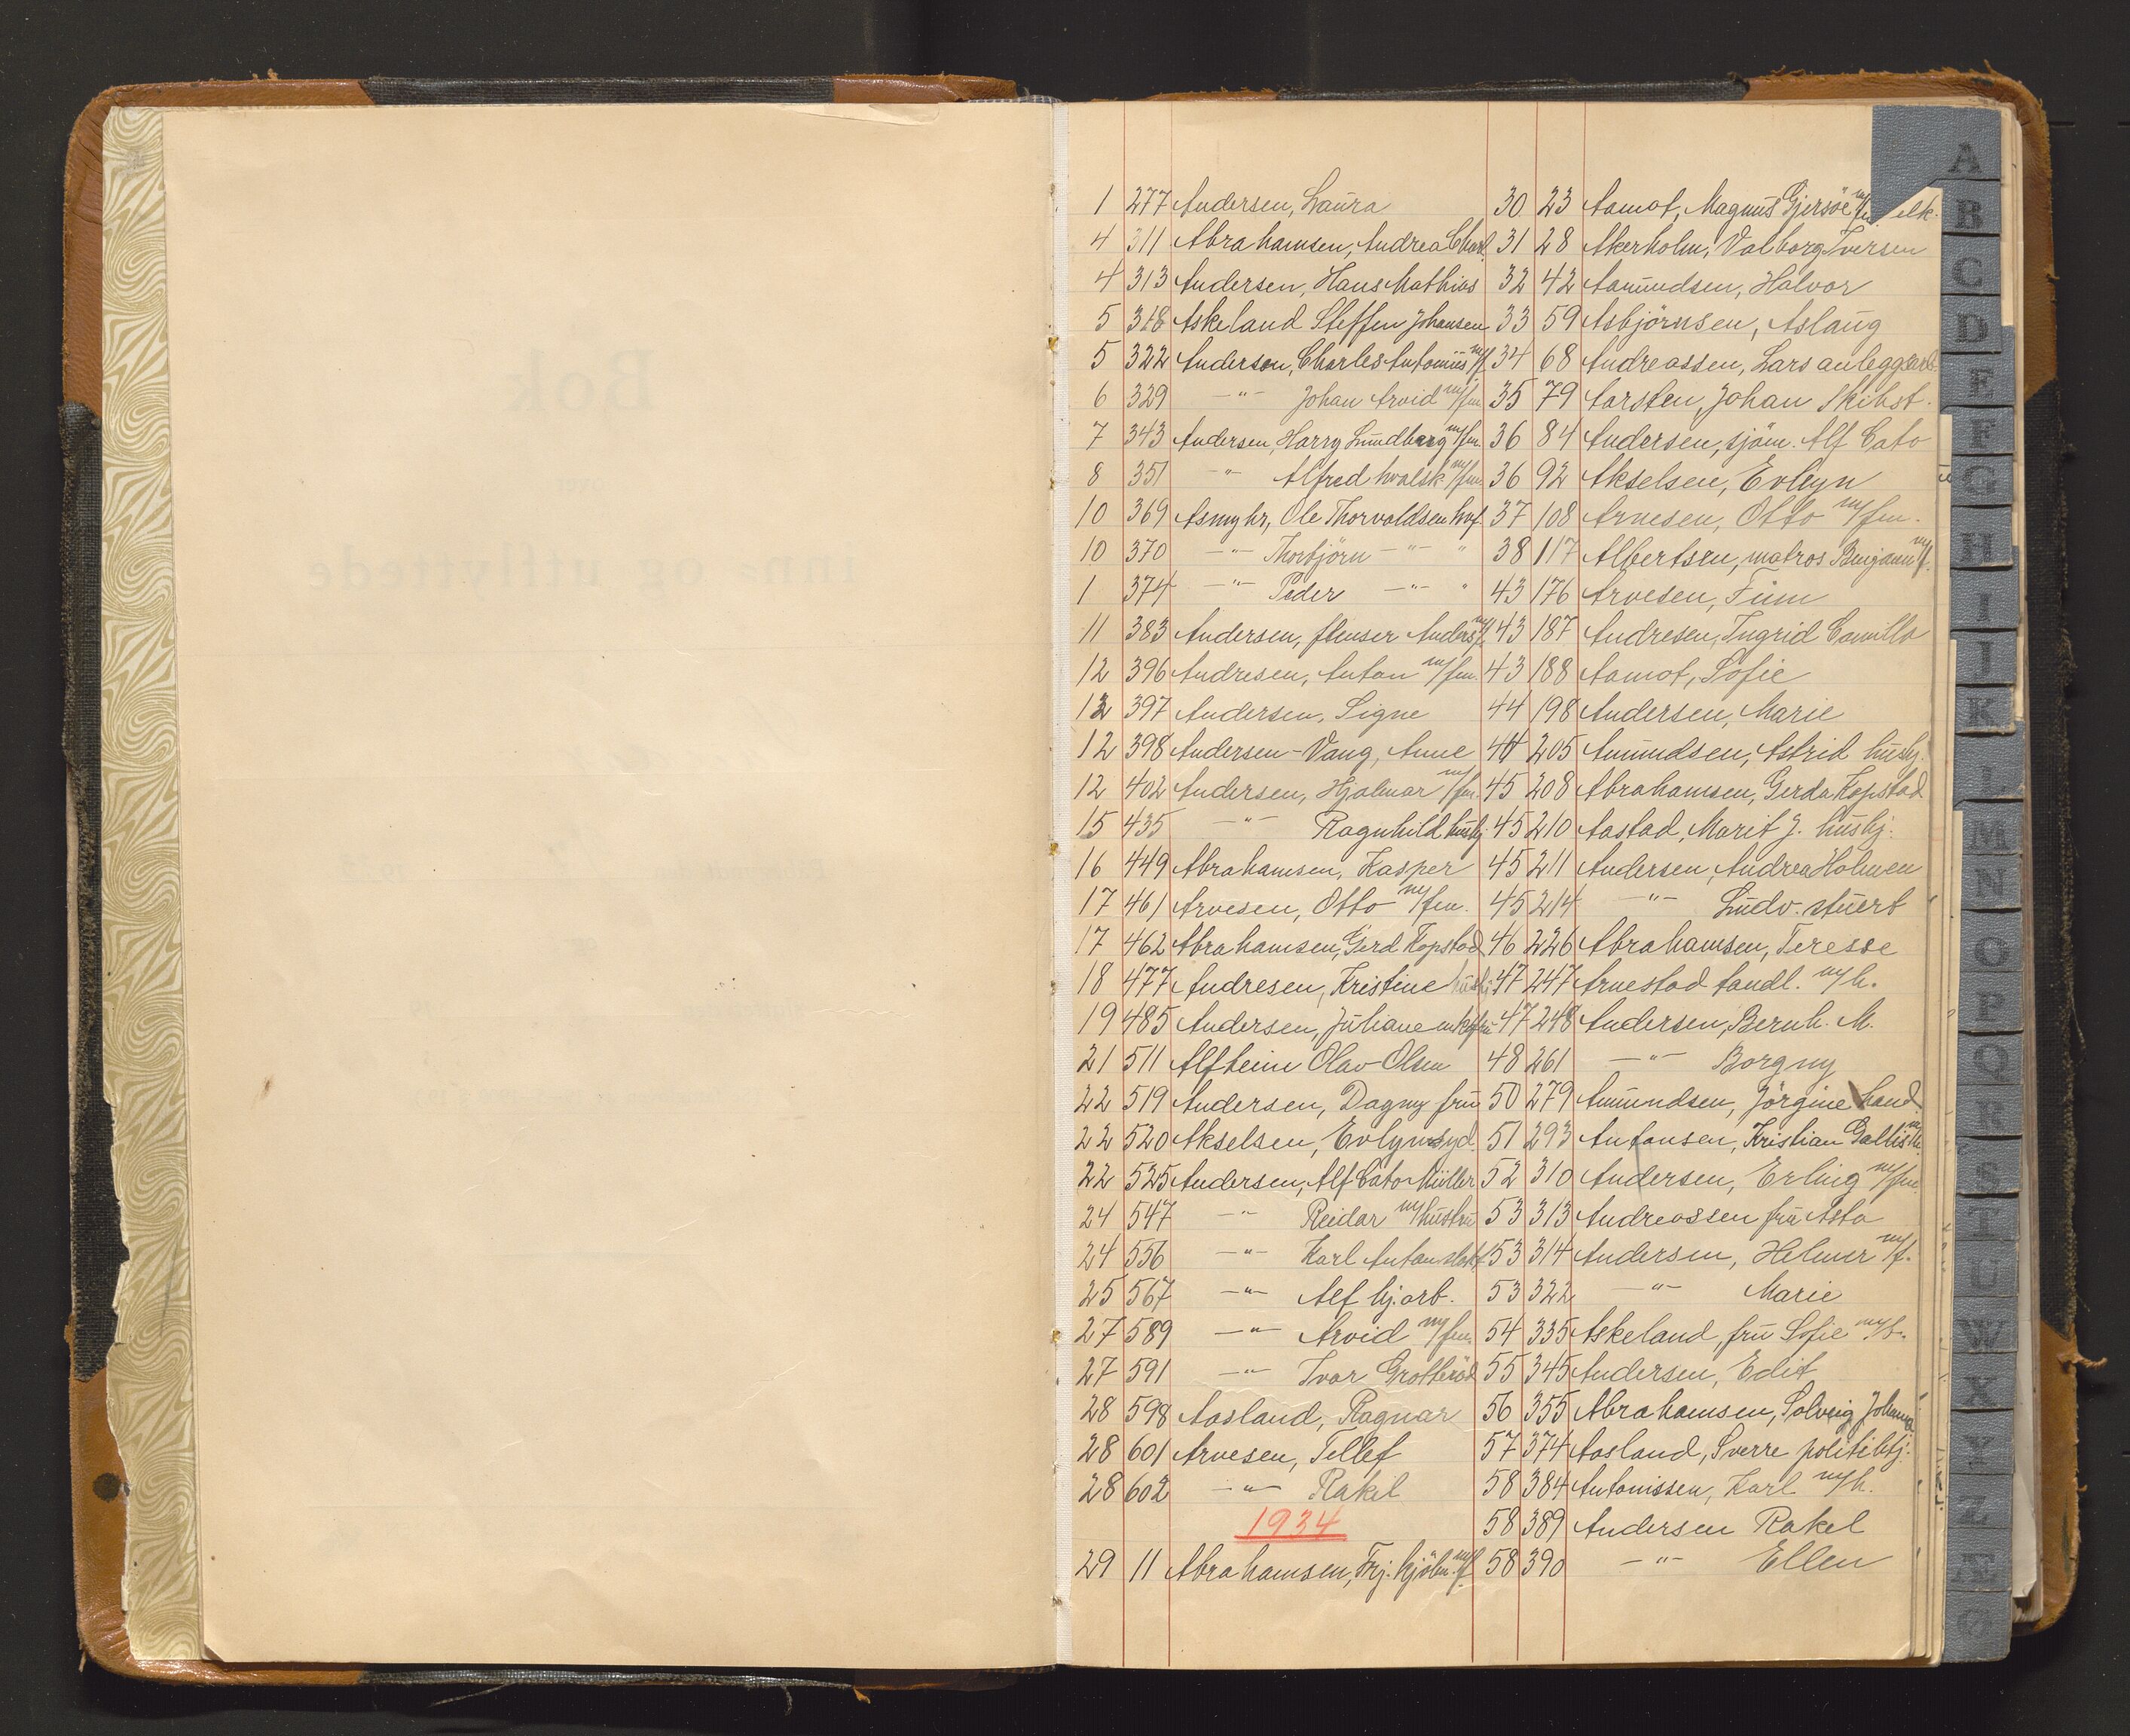 1 277 Andersen, Laura
4 311 Abrahamsen, Andrea Charl.
4 313 Andersen, Hans Mathias
5 318 Askeland Steffen Johansen
5 322 Anderson, Charles Antonius m/f.
6 329 -"- Johan Arvid m/fm
7 343 Andersen, Harry Lundberg m/fm.
8 351 -"- Alfred hvalsk. m/fm
10 369 Asmyhr, Ole Thorvaldsen hvf.
10 370 -"- Thorbjörn -"- "
1 374 -"- Peder -"- "
11 383 Andersen, flenser Anders m/f.
12 396 Andresen, Anton m/fm.
12 397 Andersen, Signe
12 398 Andersen-Vang, Anne
12 402 Andersen, Hjalmar m/fm.
15 435 -"- Ragnhild hushj
16 449 Abrahamsen, Kasper
17 461 Arvesen, Otto m/fm.
17 462 Abrahamsen, Gerd Kopstad
18 477 Andresen, Kristine hushj.
19 485 Andersen, Juliane enkefru
21 511 Alfheim Olav Olsen
22 519 Andersen, Dagny fru
22 520 Akselsen, Evlyn syd.
22 525 Andersen, Alf Cato Müller
24 547 -"- Reidar m/hustru
24 556 -"- Karl Anton slakt
25 567 -"- Alf hj.arb.
27 589 -"- Arvid m/fm.
27 591 -"- Ivar Grotteröd
28 598 Aasland, Ragnar
28 601 Arvesen, Tellef
28 602 -"- Rakel
1934
29 11 Abrahamsen, Frj. hjölm. m/f.
30 23 Aamot, Magnus Gjersöe m/fm elk.
31 28 Akerholm, Valborg Iversen
32 42 Aamundsen, Halvor
33 59 Asbjörnsen, Aslaug
34 68 Andreassen, Lars anleggsarb.
35 79 Aarsten, Johan Skibst.
36 84 Andersen, sjöm. Alf Cato
36 92 Akselsen, Evlyn
37 108 Arnesen, Otto m/fm.
38 117 Albertsen, matros Benjamin m/f.
43 176 Arvesen, Finn
43 187 Andresen, Ingrid Camilla
43 188 Aamot, Sofie
44 198 Andersen, Marie
44 205 Amundsen, Astrid hushj.
45 208 Abrahamsen, Gerda Kopstad
45 210 Aastad, Marit J. hushj.
45 211 Andersen, Andrea Holmen
45 214 -"- Ludv. stuert
46 226 Abrahamsen, Teresse
47 247 Arnestad tandl. m/h.
47 248 Andersen, Bernh. M.
48 261 -"- Borgny
50 279 Amundsen, Jörgine hand.
51 293 Antonsen, Kristian Galtis m/h.
52 310 Andersen, Erling m/fm.
53 313 Andreassen fru Asta
53 314 Andersen, Helmer m/f.
53 322 -"- Marie
54 335 Askeland, fru Sofie m/b.
55 345 Andersen, Edit
56 355 Abrahamsen, Solveig Johanna
57 374 Aasland, Sverre politibtj.
58 384 Antonissen, Karl m/h.
58 389 Andersen Rakel
58 390 -"- Ellen
A
B
C
D
E
F
G
H
I
J
K
L
M
N
O
P
Q
R
S
T
U
W
X
Y
Z
Æ
Ø